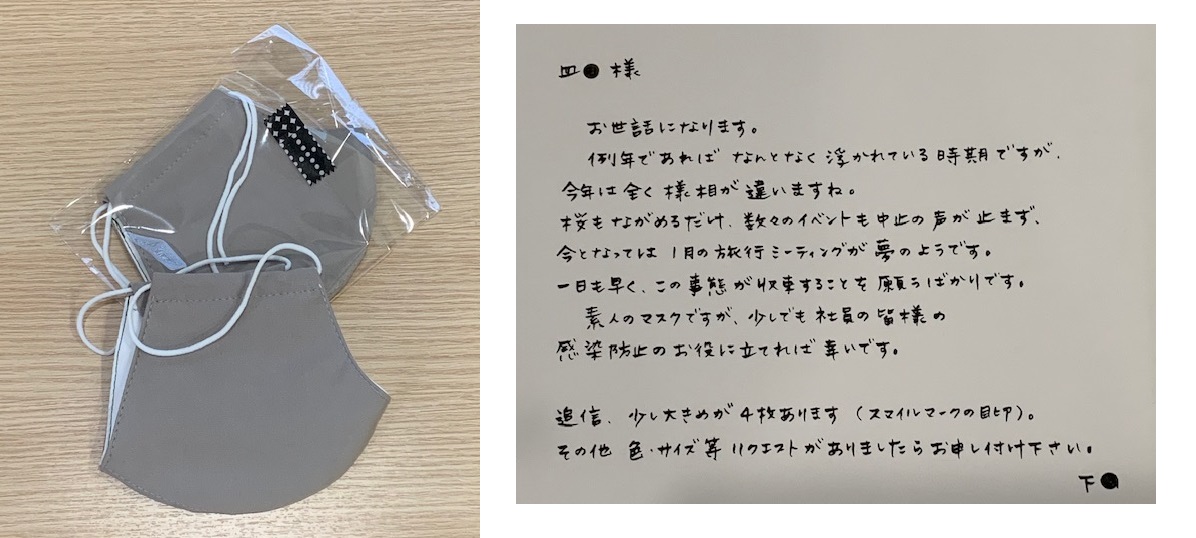 皿●様
お世話になります。
例年であれば なんとなく 浮かれている時期ですが、
今年は全く様相が違いますね。
桜もながめるだけ、数々のイベントも中止の声が止まず、
今となっては1月の旅行ミーティングが夢のようです。
一日も早く、この事態が収束することを願うばかりです。
素人のマスクですが、少しでも社員の皆様の
感染防止のお役に立てれば幸いです。
追信、少し大きめが4枚あります(スマイルマークの目印)。
その他 色・サイズ等リクエストがありましたらお申し付け下さい。
下●